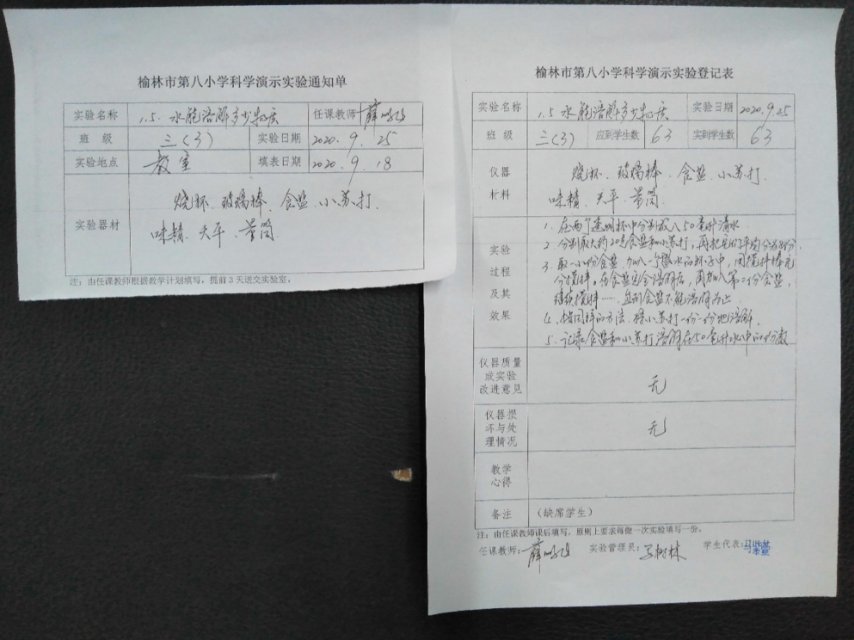 榆林市第八小学科学演示实验通知单
实验名称 1.5.水能溶解多少物质 任课教师 薛
班 级 三(3) 实验日期 2020.9.25
实验地点 教室 填表日期 2020.9.18
实验器材 烧杯、玻璃棒、食盐、小苏打、
味精、天平、量筒
注：由任课教师根据教学计划填写，提前3天送交实验室。
榆林市第八小学科学演示实验登记表
实验名称 1.5水能溶解多少物质 实验日期 2020.9.25
班 级 三(3) 应到学生数 63 实到学生数 63
仪器
材料
烧杯、玻璃棒、食盐、小苏打、
味精、天平、量筒
实验
过程
及其
效果
1. 在两个透明杯中分别放入50毫升清水
2. 分别取大约20克食盐和小苏打，再把它们平均分成8份
3. 取一小份食盐，加入一个盛水的杯子中，用搅拌棒充
分搅拌。在食盐完全溶解后，再加入第二份食盐，
继续搅拌……直到食盐不能溶解为止
4. 按同样的方法，将小苏打一份一份地溶解、
5. 记录食盐和小苏打溶解在50毫升水中的份数
仪器质量
或实验
改进意见
无
仪器损
坏与处
理情况
无
教学
心得
备注 （缺席学生）
注：由任课教师课后填写，原则上要求每做一次实验填写一份。
任课教师：薛 实验管理员：马树林 学生代表：马